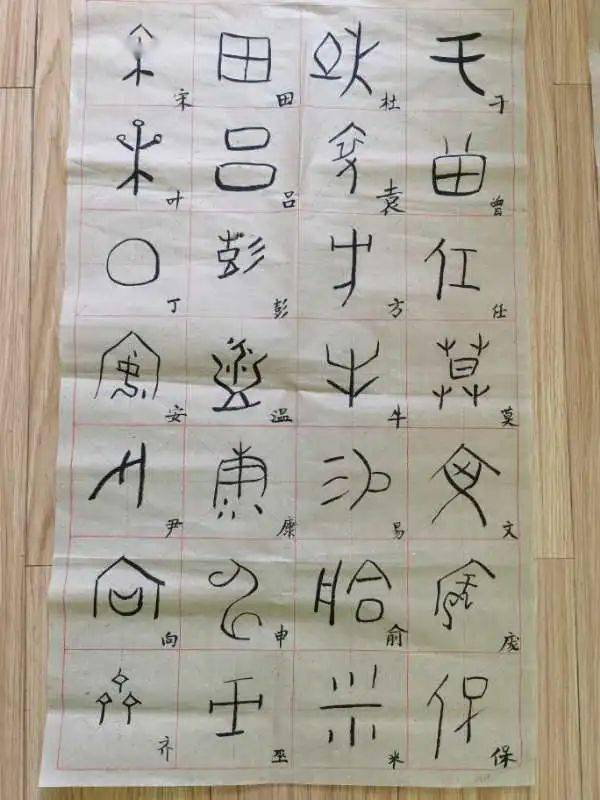 宋 田 杜 于
叶 吕 袁 曾
丁 彭 方 任
安 温 牛 莫
尹 康 易 文
向 申 俞 庞
齐 巫 米 保